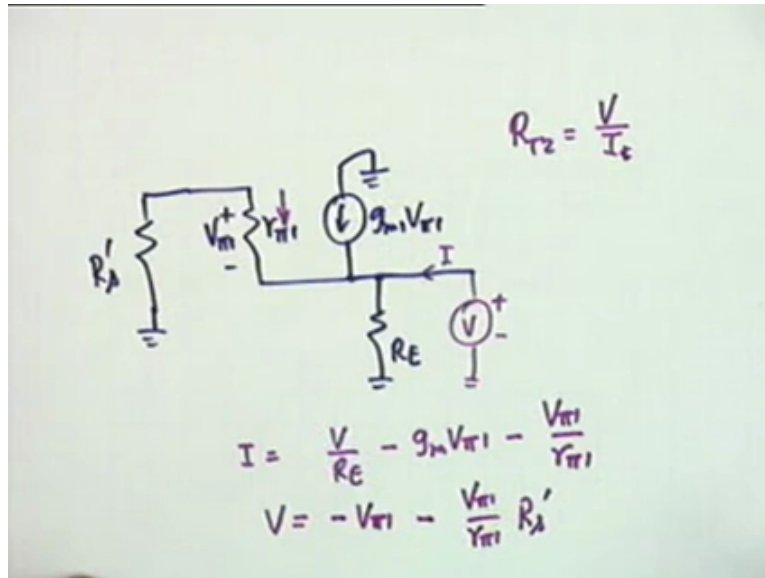 R_T2 = V/I_t
V_π1 + - r_π1 g_m1 V_π1
I
R_s'
V + -
R_E
I = V/R_E - g_m V_π1 - V_π1/r_π1
V = - V_π1 - V_π1/r_π1 R_s'